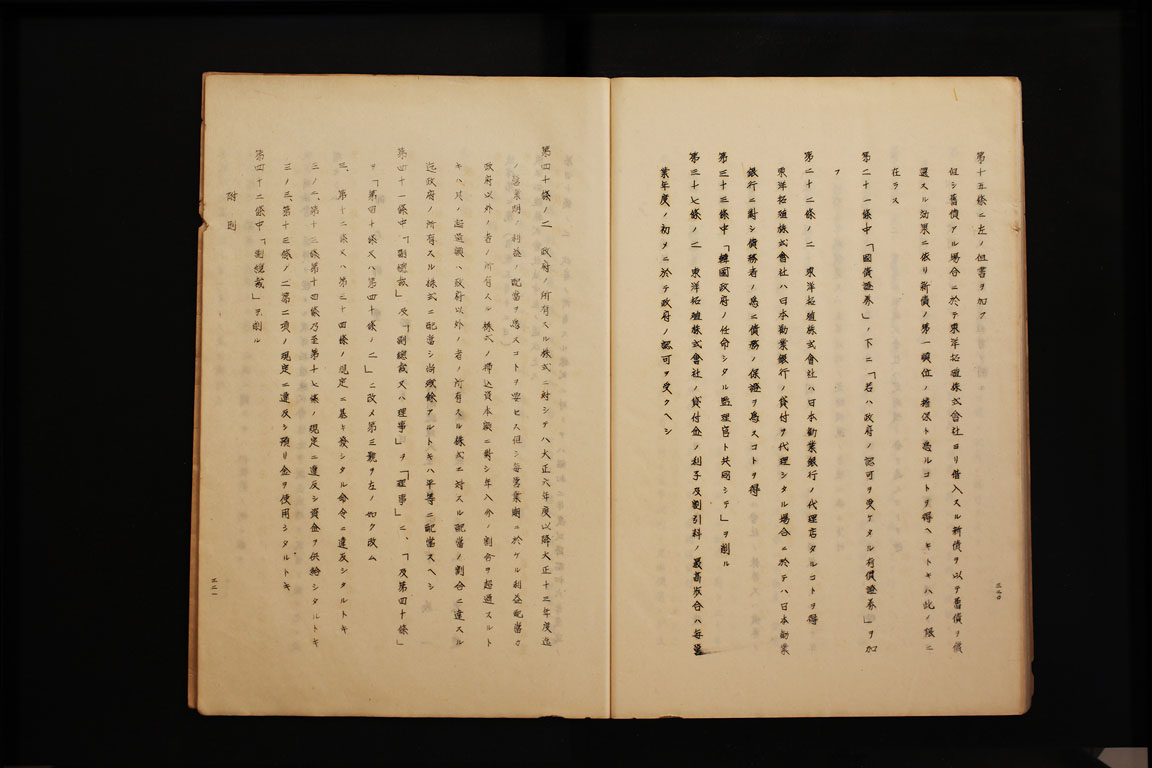 第十五條ニ左ノ但書ヲ加フ
但シ舊債アル場合ニ於テ東洋拓殖株式會社ヨリ借入スル新債ヲ以テ舊債ヲ償
還スル効果ニ依リ新債ノ第一順位ノ擔保ト爲ルコトヲ得ヘキトキハ此ノ限ニ
在ラス
第二十一條中「國債證券」ノ下ニ「若ハ政府ノ認可ヲ受ケタル有價證券」ヲ加
フ
第二十二條ノ二 東洋拓殖株式會社ハ日本勸業銀行ノ代理店タルコトヲ得
東洋拓殖株式會社ハ日本勸業銀行ノ貸付ヲ代理シタル場合ニ於テハ日本勸業
銀行ニ對シ債務者ノ爲ニ債務ノ保證ヲ爲スコトヲ得
第三十三條中「韓國政府ノ任命シタル監理官ト共同シテ」ヲ削ル
第三十七條ノ二 東洋拓殖株式會社ノ貸付金ノ利子及割引料ノ最高歩合ハ毎營
業年度ノ初メニ於テ政府ノ認可ヲ受クヘシ
三二〇
第四十條ノ二 政府ノ所有スル株式ニ対シテハ大正六年度以降大正十三年度迄
ノ營業期ノ利益ノ配當ヲ爲スコトヲ要セス但シ毎營業期ニ於ケル利益配當カ
政府以外ノ者ノ所有スル株式ノ拂込資本額ニ對シ年八分ノ割合ヲ超過スルト
キハ其ノ超過額ハ政府以外ノ者ノ所有スル株式ニ対スル配當ノ割合ニ達スル
迄政府ノ所有スル株式ニ配當シ尚殘餘アルトキハ平等ニ配當スヘシ
第四十一條中「副總裁」及「副總裁又ハ理事」ヲ「理事」ニ、「及第四十條」
ヲ「第四十條又ハ第四十條ノ二」ニ改メ第三號ヲ左ノ如ク改ム
三、第十二條又ハ第三十四條ノ規定ニ基キ發シタル命令ニ違反シタルトキ
三ノ二、第十三條第十四條乃至第十七條ノ規定ニ違反シ資金ヲ供給シタルトキ
三ノ三、第十三條ノ二第二項ノ規定ニ違反シ預リ金ヲ使用シタルトキ
第四十二條中「副總裁」ヲ削ル
附則
三二一